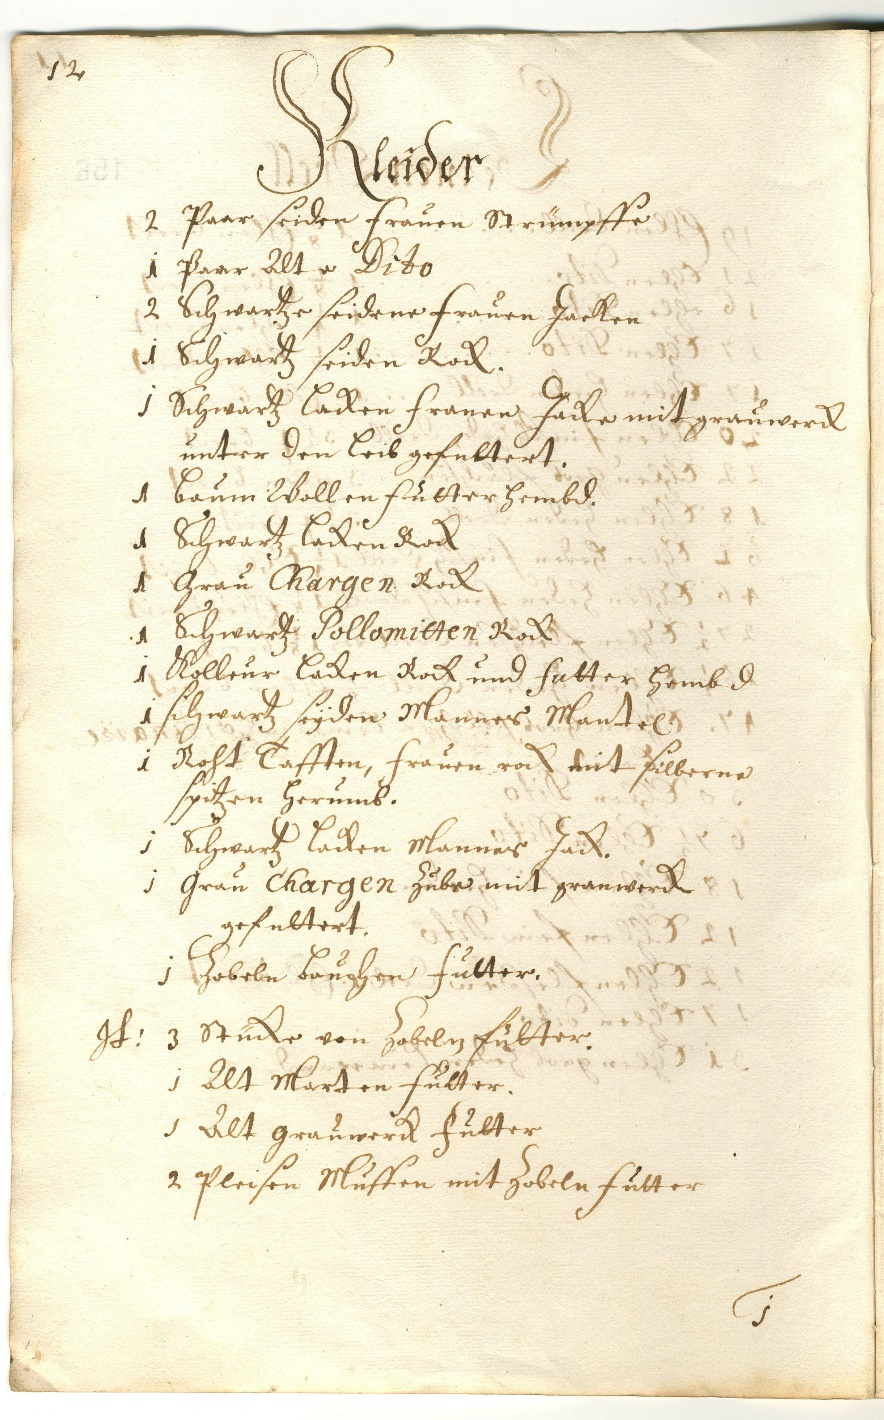 12
Kleider
2 Paar seiden frauen Strümpffe
1 Paar Alte Dito
2 Schwartze seidene frauen Jacken
1 Schwartz seiden Rock.
1 Schwartz lacken frauen Jacke mit grauwerck
unter den leib gefuttert.
1 baum Wollen futter hembd.
1 Schwartz lacken Rock
1 Grau Chargen Rock
1 Schwartz Pollomitten Rock
1 Kolleur lacken Rock und futter hembd
1 schwartz seyden Mannes Mantel
1 Roht Tafften, frauen rock mit silberne
spitzen herumb.
1 Schwartz lacken Mannes Jack.
1 Grau Chargen Zube mit grauwerck
gefuttert.
1 Zobeln bauchen futter.
It: 3 Stücke von Zobeln futter.
1 Alt Marten futter.
1 Alt grauwerck futter
2 Pleisen Muffen mit Zobeln futter
1